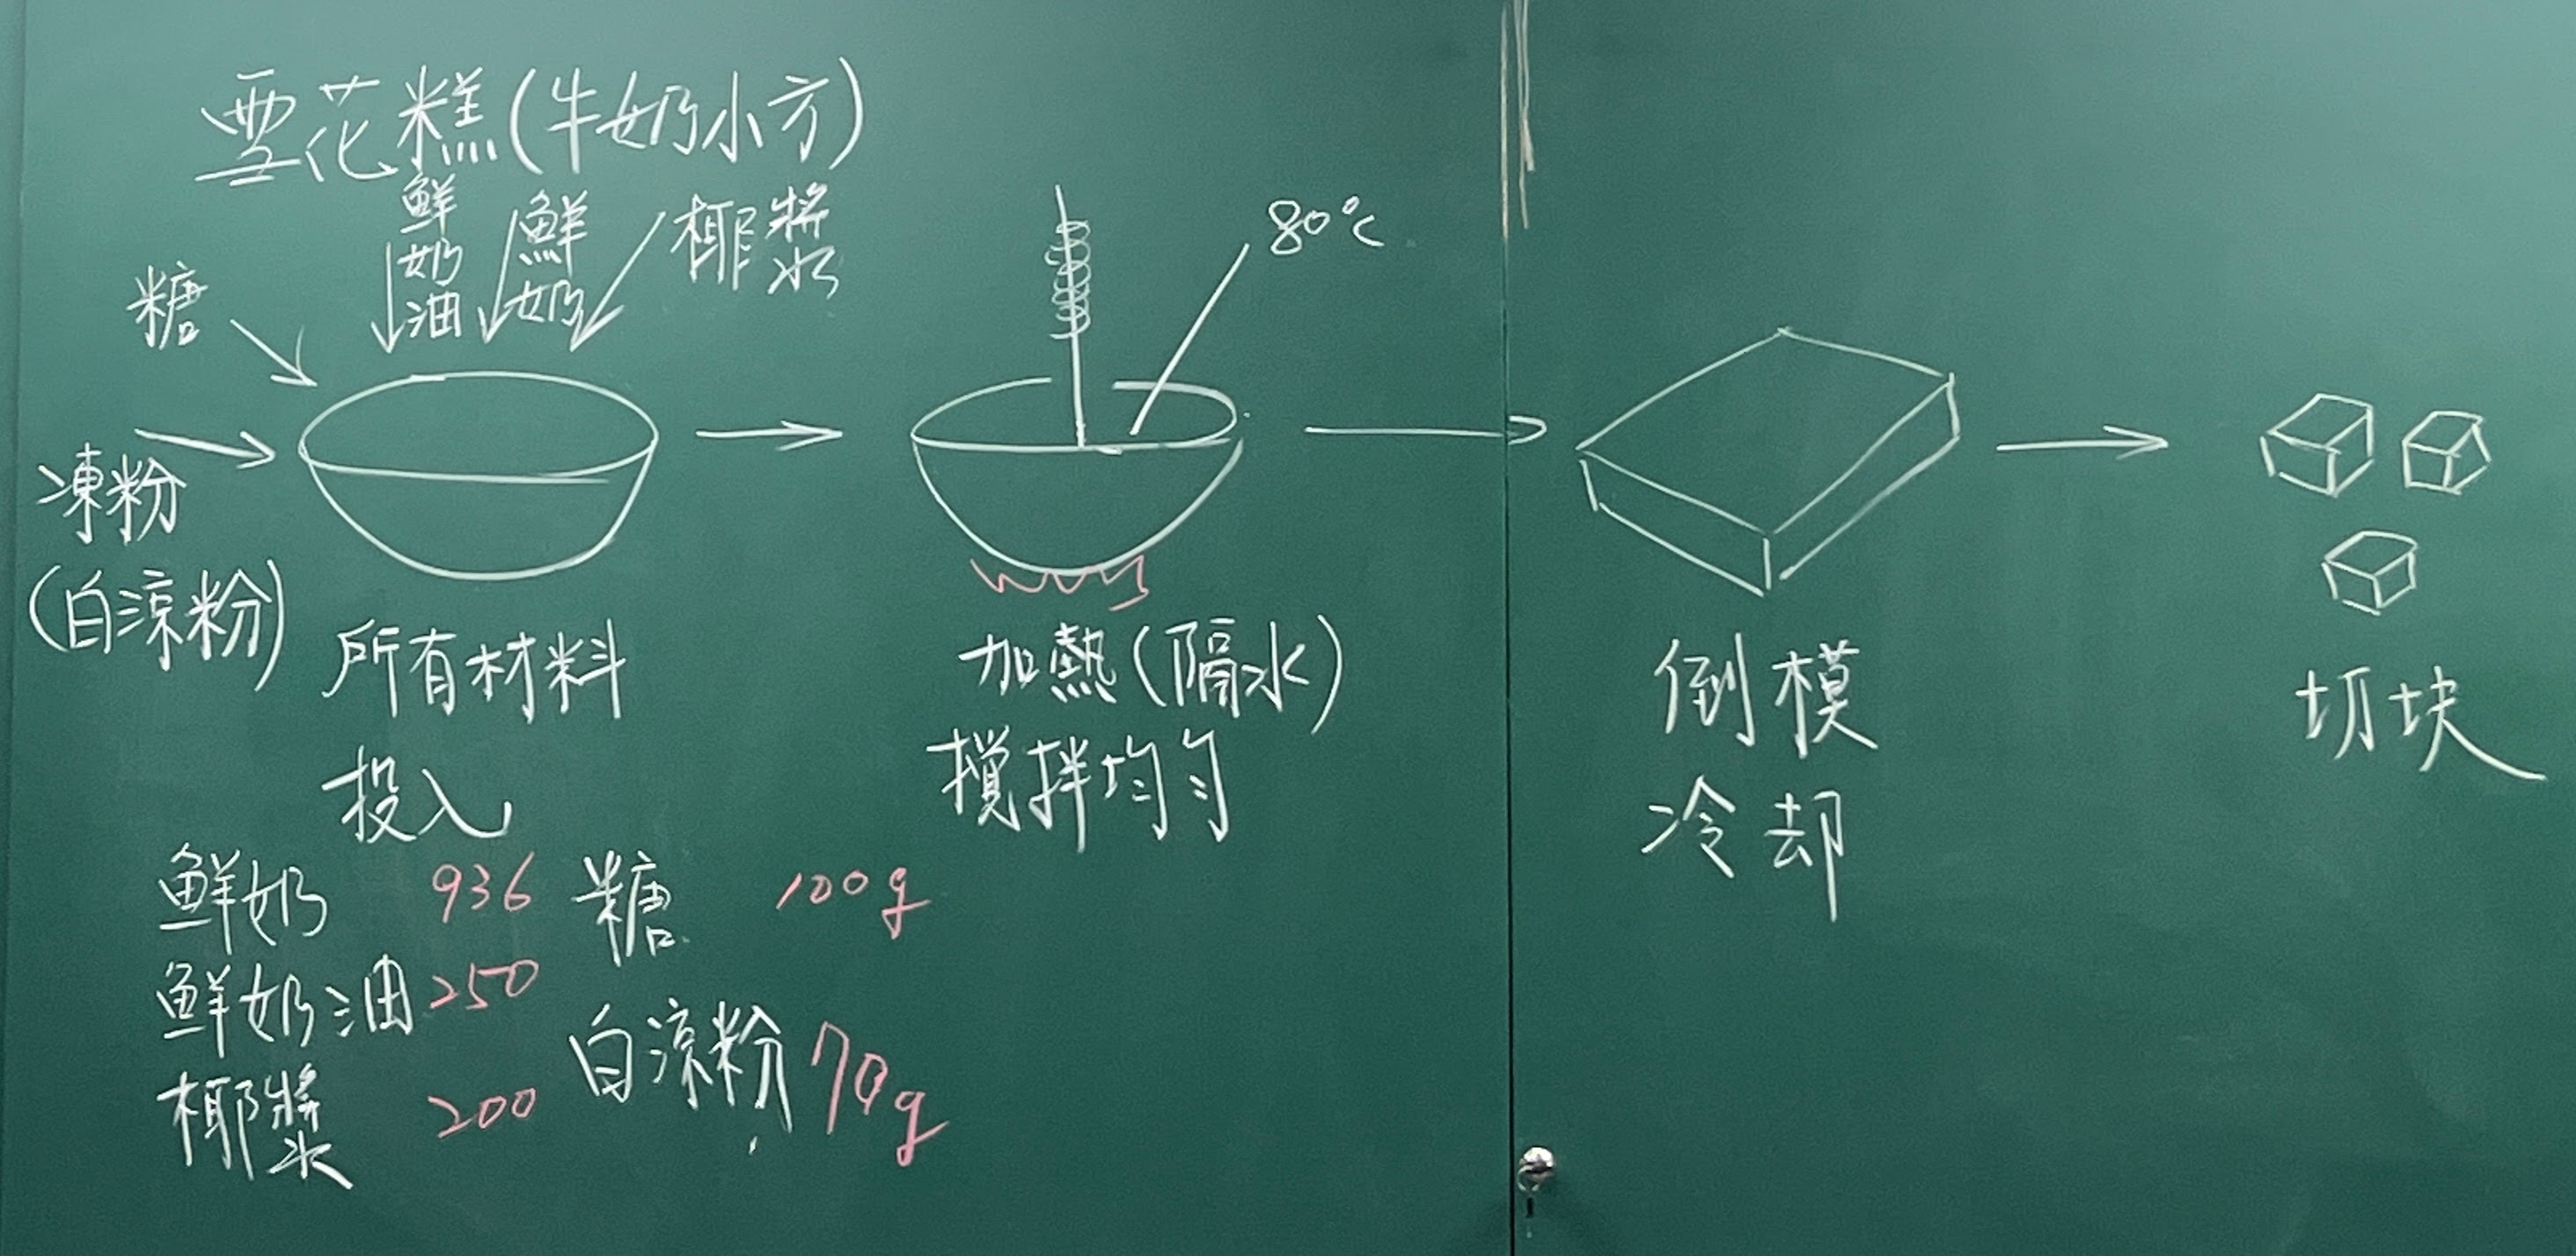 雪花糕(牛奶小方)
糖
鮮奶油
鮮奶
椰漿
80°C
凍粉
(白涼粉)
所有材料
投入
加熱(隔水)
攪拌均勻
倒模
冷却
切块
鮮奶 936 糖 100g
鮮奶油 250
白涼粉 70g
椰漿 200